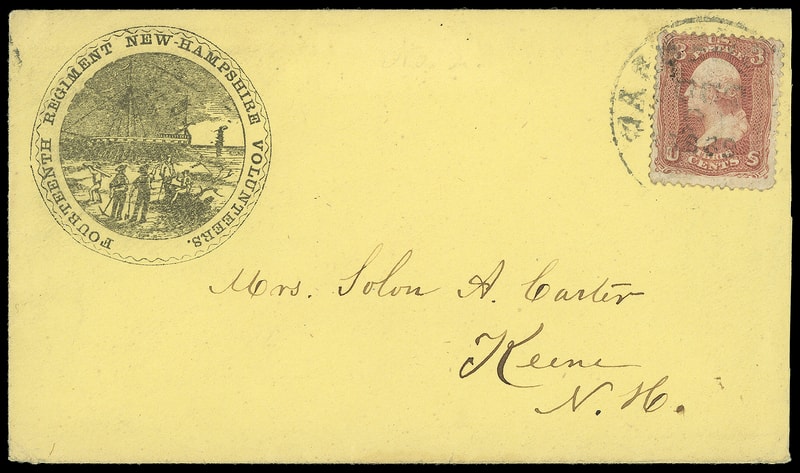 FOURTEENTH REGIMENT NEW-HAMPSHIRE VOLUNTEERS.
3 U.S. 3
POSTAGE
U THREE S
CENTS
Mrs. Solon A. Carter
Keene
N. H.